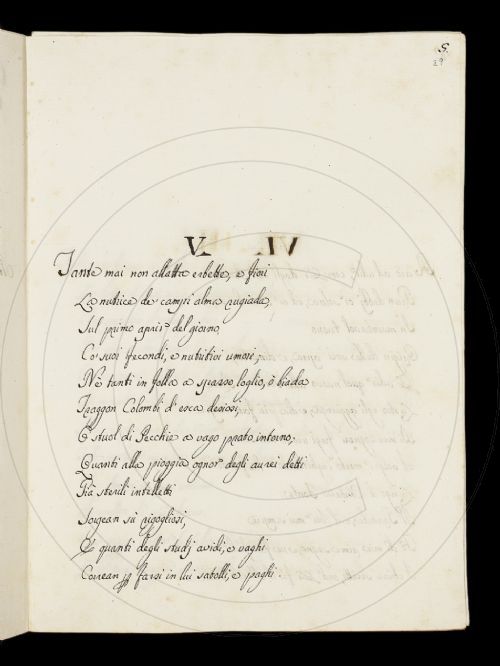 5.
29
V.
Tante mai non allatta erbette, e fiori
La nutrice de' campi alma rugiada,
Sul primo aprir del giorno
Co' suoi fecondi, e nutritivi umori;
Nè tanti in folla a sparso loglio, ò biada
Traggon Colombi d'esca desiosi;
O stuol di Pecchie a vago prato intorno;
Quanti alla pioggia ognor degli aurei detti
Già sterili intelletti
Sorgean sù rigogliosi,
E quanti degli studj avidi, e vaghi
Correan p farsi in lui satolli, e paghi.